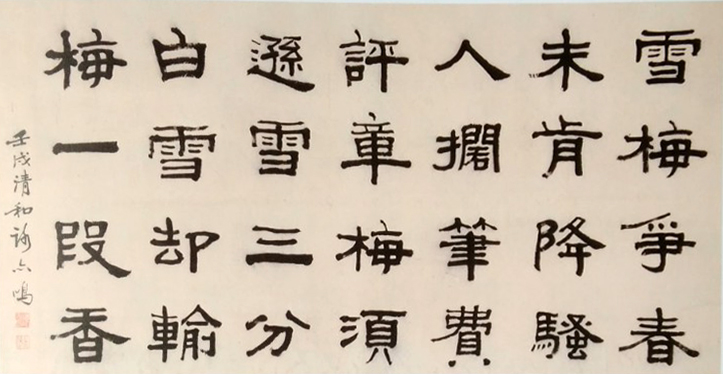 雪梅爭春
未肯降騷
人擱筆費
評章梅須
遜雪三分
白雪却輸
梅一段香
壬戌清和鳴